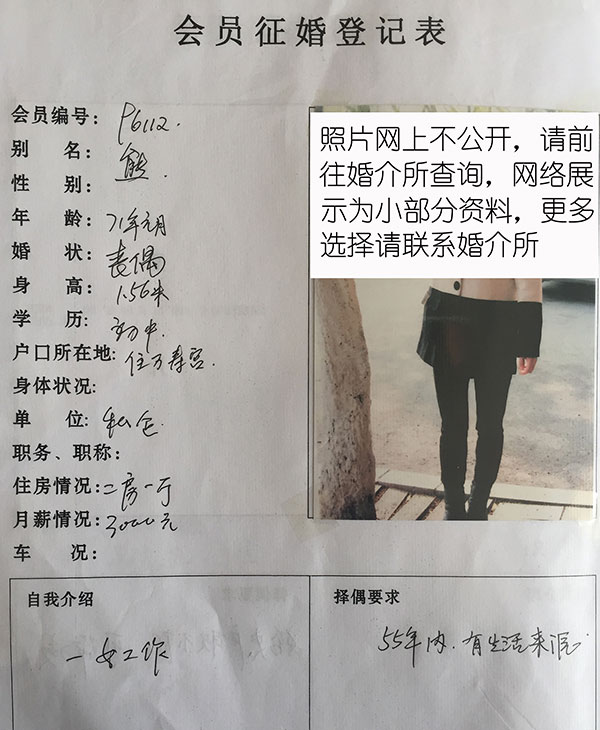 会员征婚登记表
会员编号: P6112.
别 名: 熊
性 别:
年 龄: 71年元月
婚 状: 丧偶
身 高: 1.56米
学 历: 初中
户口所在地: 住万寿宫.
身体状况:
单 位: 私仓
职务、职称:
住房情况: 二房一厅
月薪情况: 3000元
车 况:
照片网上不公开，请前
往婚介所查询，网络展
示为小部分资料，更多
选择请联系婚介所
自我介绍
一女工作
择偶要求
55年内.有生活来源.